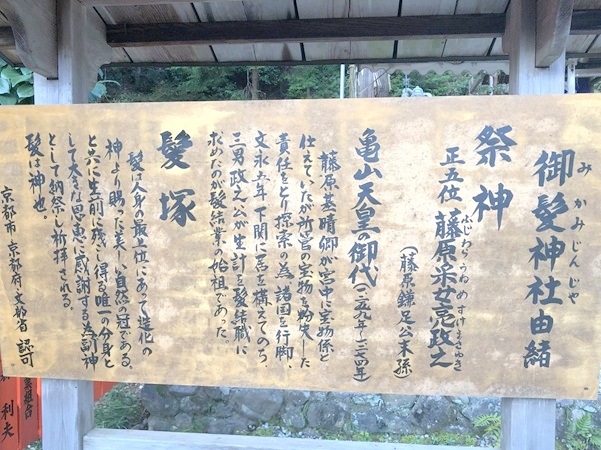 御髪神社由緒
みかみじんじゃ
祭神
正五位 藤原采女亮政之
ふじわらうねめすけまさゆき
(藤原鎌足公末孫)
亀山天皇の御代(一二五九年〜一二七四年)
藤原基晴卿が宮中に宝物係と
仕えていたが所管の宝物を紛失した
責任をとり探索の為、諸国を行脚、
文永五年、下関に居を構えてのち、
三男政之公が生計を髪結職に
求めたのが髪結業の始祖であった。
髪塚
髪は人身の最上位にあって造化の
神より賜った美しい自然の冠である。
と共に生前に残し得る唯一の分身と
して大きな恩恵に感謝する為副神
として納祭し祈拝される。
髪は神也。
京都市 京都府 文部省 認可
利夫